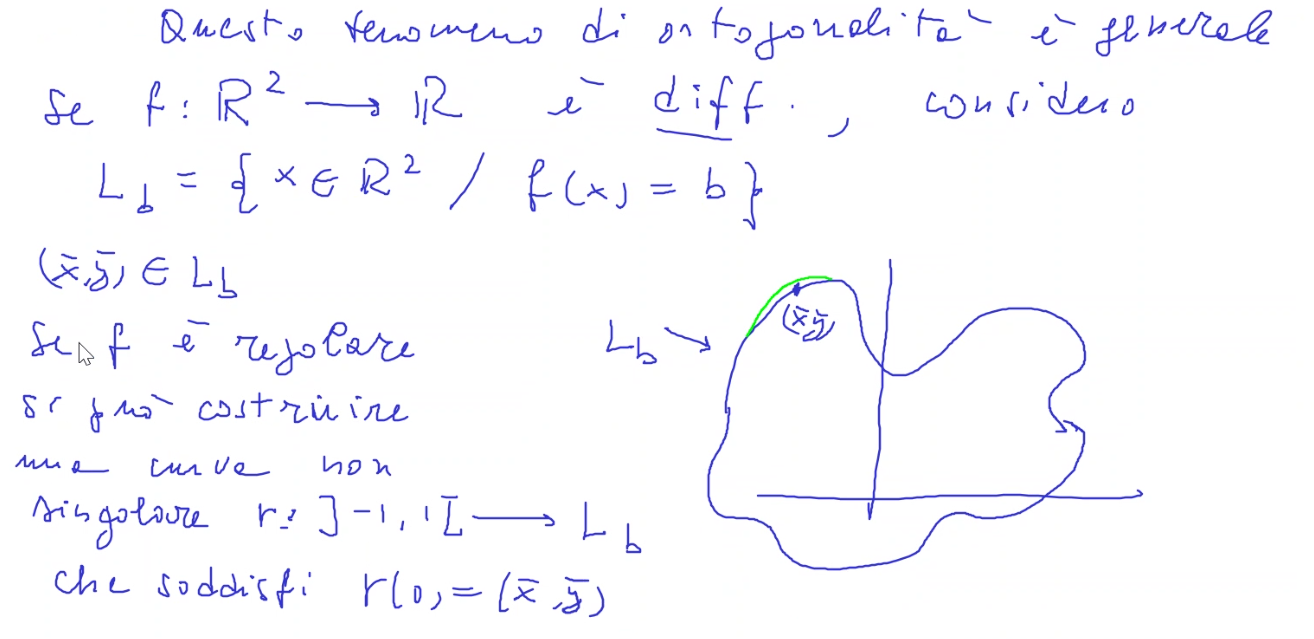 Questo fenomeno di ortogonalità è generale
Se f: ℝ² → ℝ è diff. , considero
L_b = { x ∈ ℝ² / f(x) = b }
(x̄,ȳ) ∈ L_b
Se f è regolare
si può costruire
una curva non
singolare r: ]-1,1[ → L_b
che soddisfi r(0) = (x̄,ȳ)
L_b →
(x̄,ȳ)